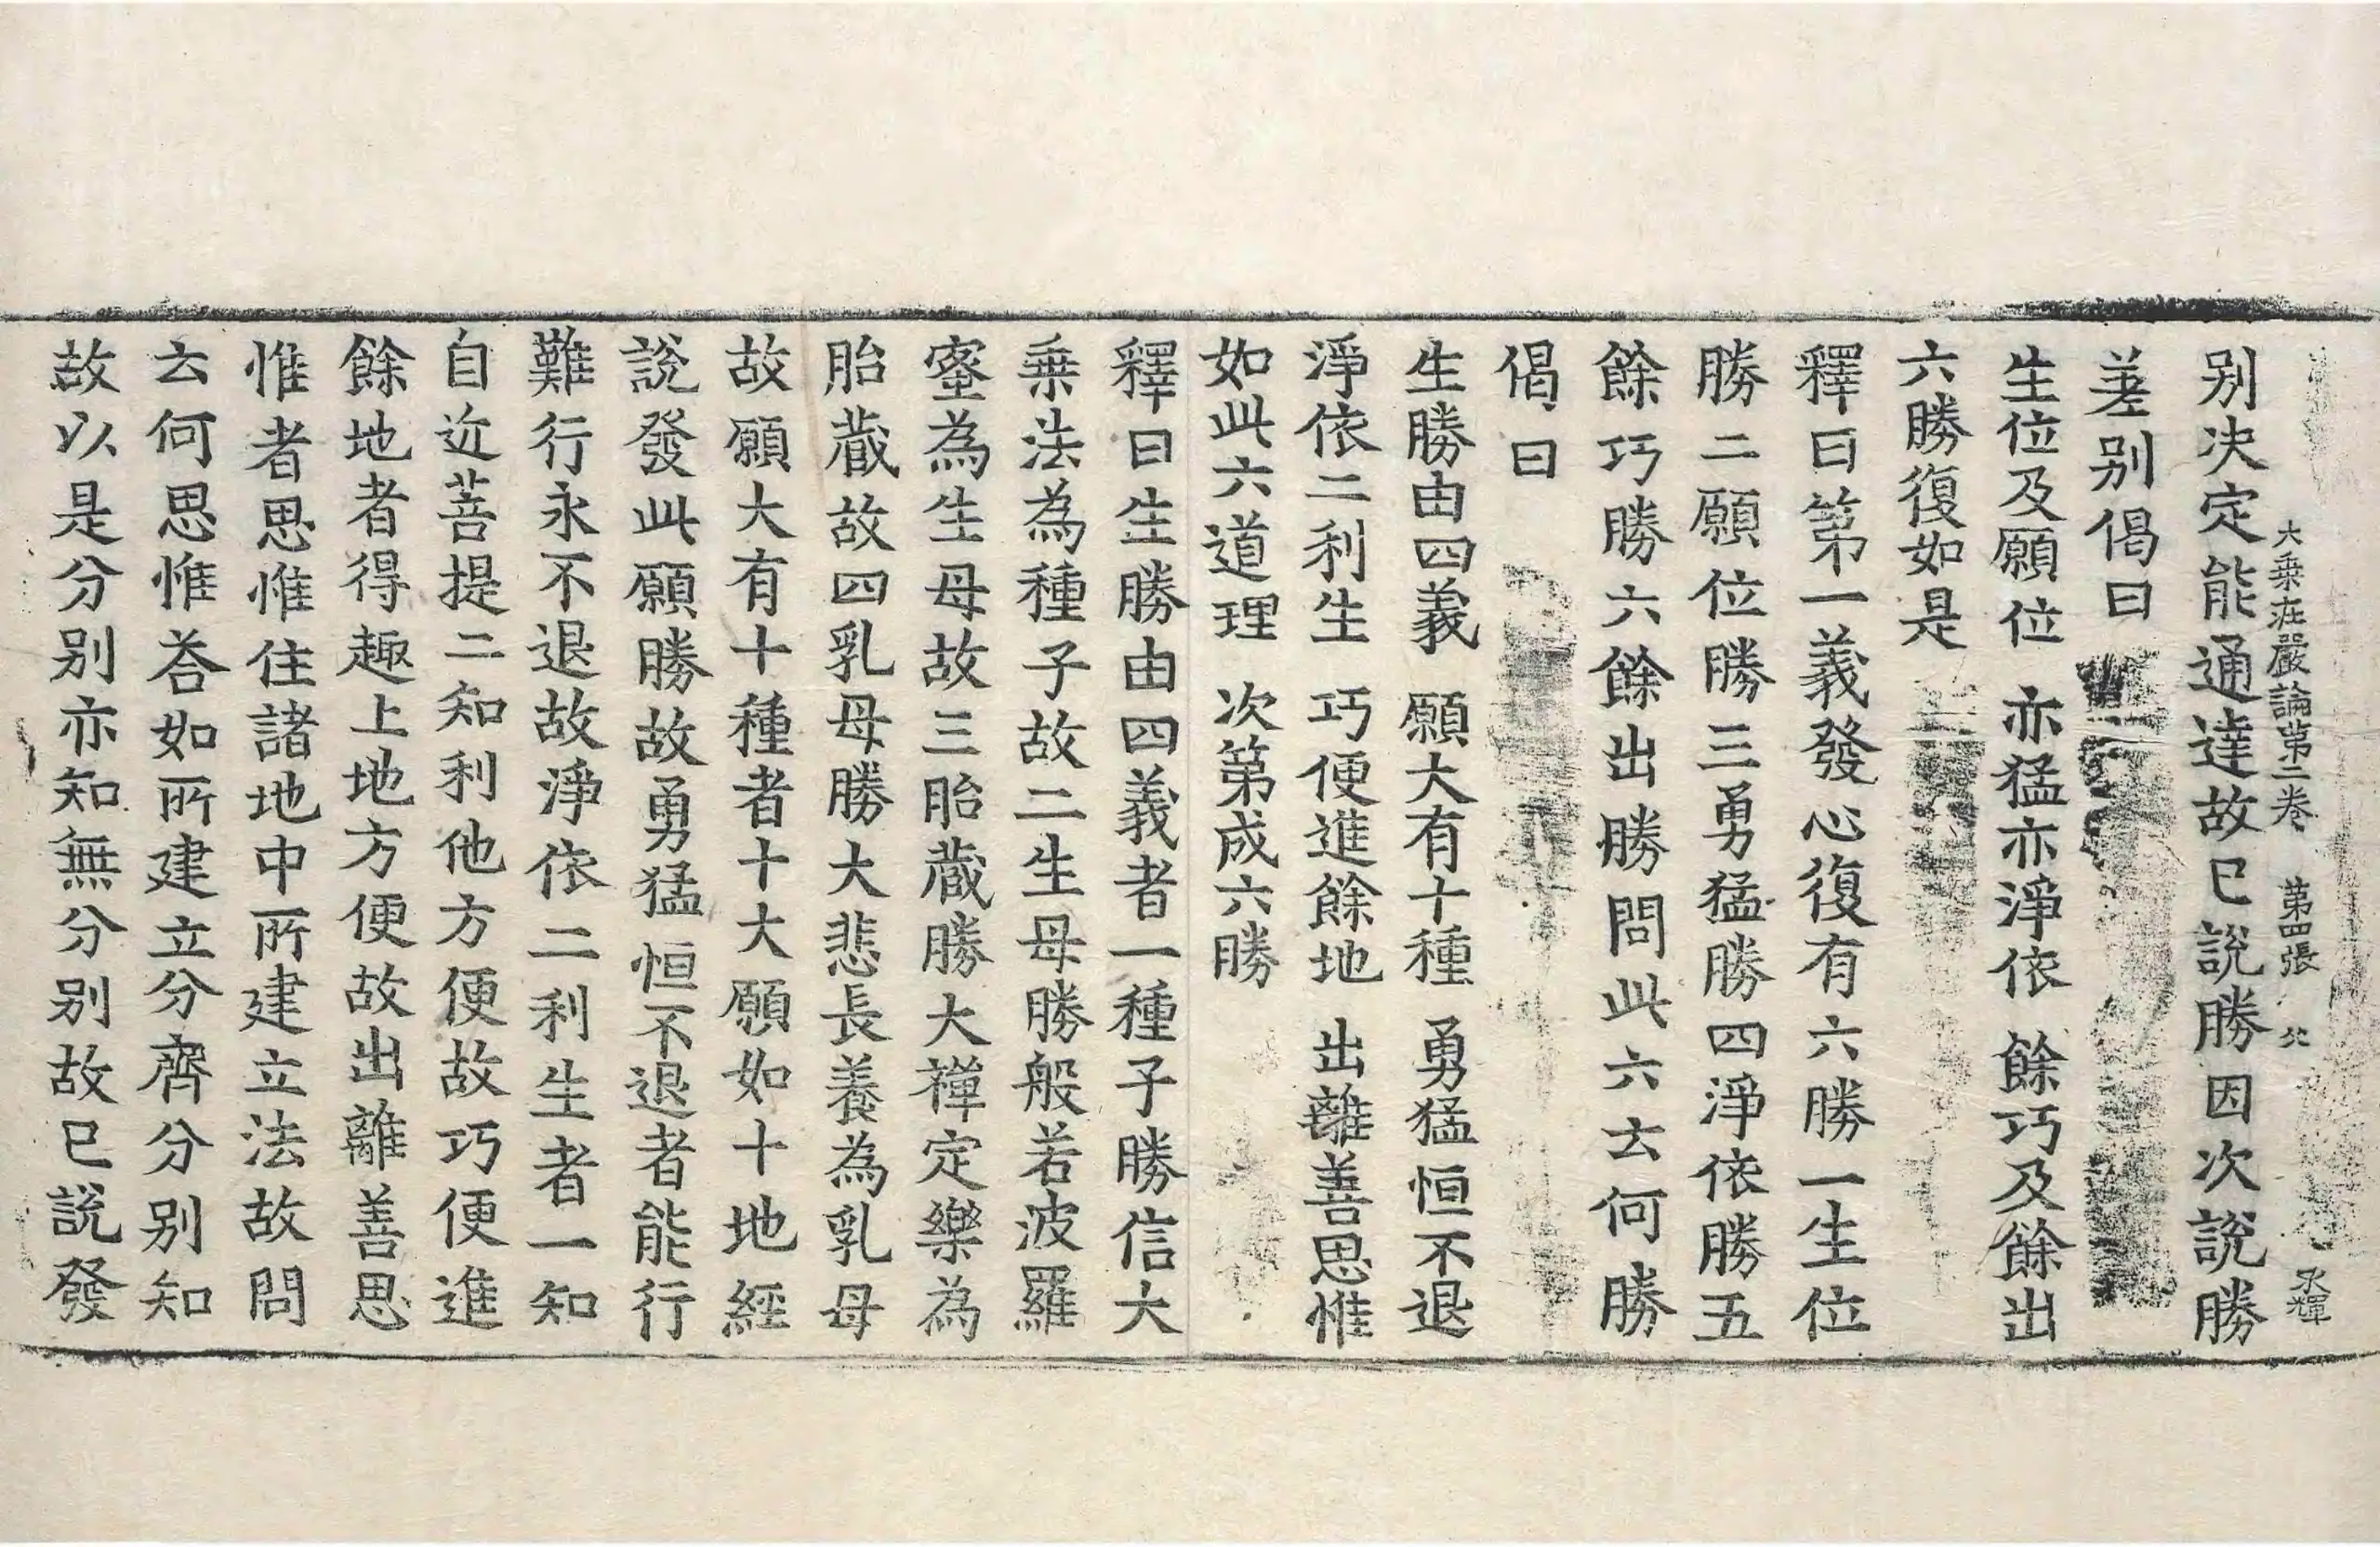 大乗莊嚴論第二卷 第四張 北 承暉
别决定能通達故已說勝因次說勝
差别偈曰
生位及願位 亦猛亦淨依 餘巧及餘出
六勝復如是
釋曰第一義發心復有六勝一生位
勝二願位勝三勇猛勝四淨依勝五
餘巧勝六餘出勝問此六云何勝
偈曰
生勝由四義 願大有十種 勇猛恒不退
淨依二利生 巧便進餘地 出離善思惟
如此六道理 次第成六勝
釋曰生勝由四義者一種子勝信大
乗法為種子故二生母勝般若波羅
蜜為生母故三胎蔵勝大禪定樂為
胎蔵故四乳母勝大悲長養為乳母
故願大有十種者十大願如十地經
說發此願勝故勇猛恒不退者能行
難行永不退故淨依二利生者一知
自近菩提二知利他方便故巧便進
餘地者得趣上地方便故出離善思
惟者思惟住諸地中所建立法故問
云何思惟荅如所建立分齊分别知
故以是分别亦知無分别故已說發